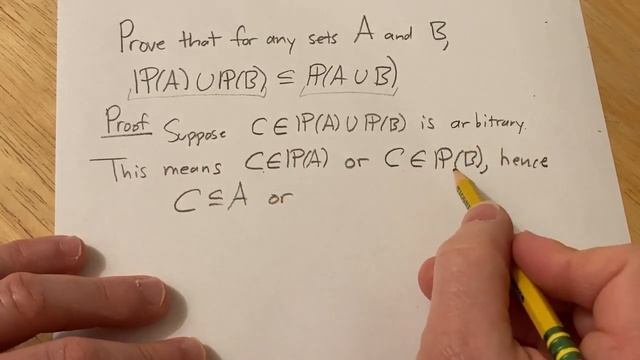 Prove that for any sets A and B,
ℙ(A) ∪ ℙ(B) ⊆ ℙ(A ∪ B)
Proof Suppose C ∈ ℙ(A) ∪ ℙ(B) is arbitrary.
This means C ∈ ℙ(A) or C ∈ ℙ(B), hence
C ⊆ A or